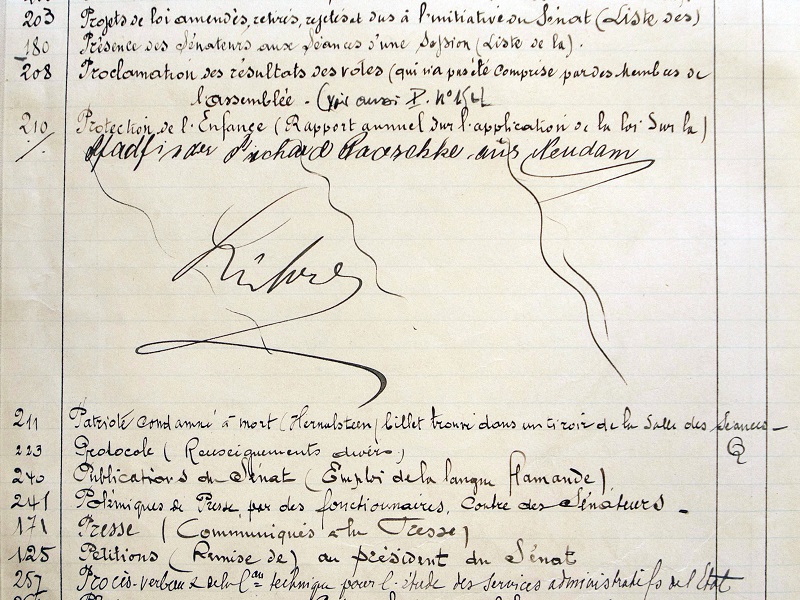 203 Projets de loi amendés, retirés, rejetés et dus à l'initiative du Sénat (Liste des)
180 Présence des Sénateurs aux Séances d'une Session (Liste de la).
208 Proclamation des résultats des votes (qui n'a pas été comprise par des Membres de
l'assemblée - (voir aussi P. n°
210 Protection de l'Enfance (Rapport annuel sur l'application de la loi sur la)
Pfadfinder Richard Raeschke aus Neudam
211 Patriote condamné à mort (Hernalsteen) billet trouvé dans un tiroir de la Salle des Séances -
223 Protocole (Renseignements divers)
240 Publications du Sénat (Emploi de la langue flamande)
241 Polémiques de Presse par des fonctionnaires, contre des Sénateurs -
171 Presse (Communiqués à la Presse)
125 Pétitions (Remise de) au président du Sénat
257 Procès-verbaux de la Con technique pour l'étude des services administratifs de l'Etat